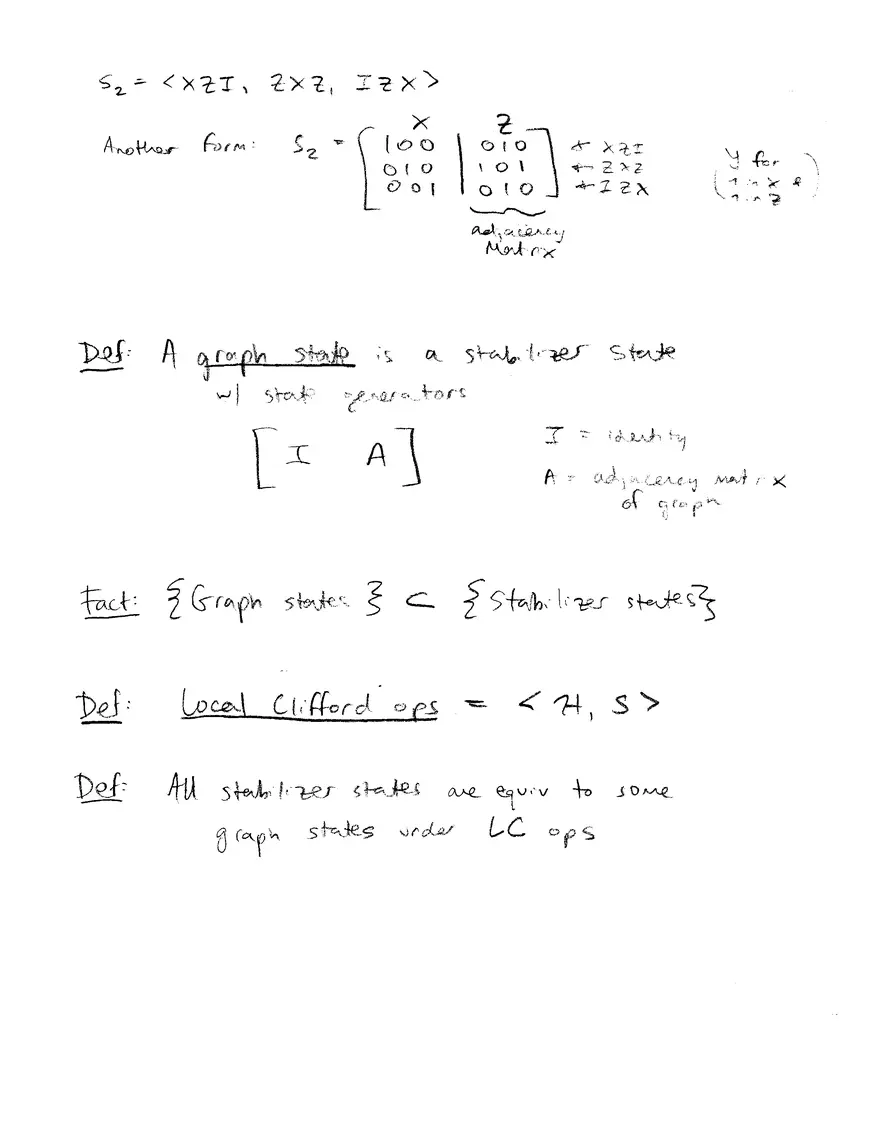 S₂ = <XZI, ZXZ, IZX>
X Z
Another form: S₂ = [ 1 0 0 | 0 1 0 ] ← XZI
[ 0 1 0 | 1 0 1 ] ← ZXZ
[ 0 0 1 | 0 1 0 ] ← IZX
( Y for
1 in X &
1 in Z )
adjacency
Matrix
Def: A graph state is a stabilizer state
w/ stab generators
[ I A ]
I = identity
A = adjacency matrix
of graph
Fact: {Graph states} ⊂ {Stabilizer states}
Def: Local Clifford ops = <H, S>
Def: All stabilizer states are equiv to some
graph states under LC ops